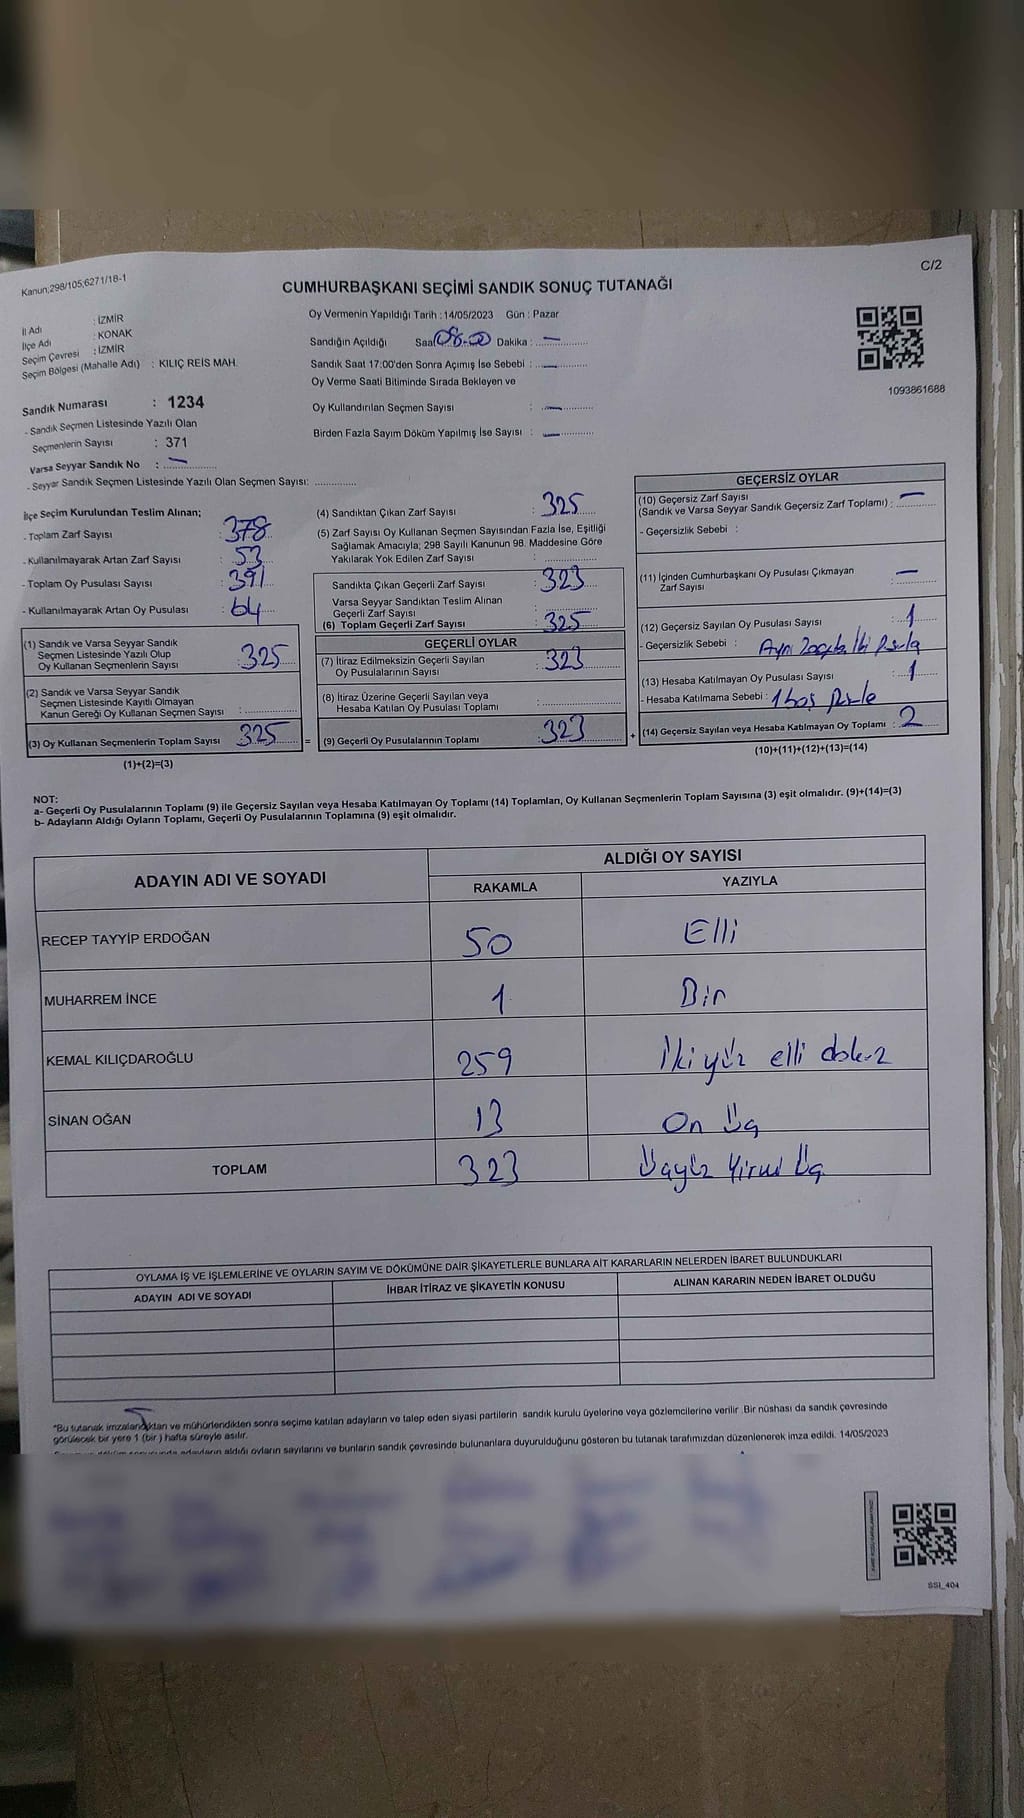 Kanun;298/105;6271/18-1
C/2
CUMHURBAŞKANI SEÇİMİ SANDIK SONUÇ TUTANAĞI
İl Adı : İZMİR
İlçe Adı : KONAK
Seçim Çevresi : İZMİR
Seçim Bölgesi (Mahalle Adı) : KILIÇ REİS MAH.
Sandık Numarası : 1234
- Sandık Seçmen Listesinde Yazılı Olan
Seçmenlerin Sayısı : 371
Varsa Seyyar Sandık No : —
- Seyyar Sandık Seçmen Listesinde Yazılı Olan Seçmen Sayısı: ..............
Oy Vermenin Yapıldığı Tarih : 14/05/2023 Gün : Pazar
Sandığın Açıldığı Saat 08.00 Dakika : —
Sandık Saat 17:00'den Sonra Açımış İse Sebebi : —
Oy Verme Saati Bitiminde Sırada Bekleyen ve
Oy Kullandırılan Seçmen Sayısı : —
Birden Fazla Sayım Döküm Yapılmış İse Sayısı : —
1093861688
İlçe Seçim Kurulundan Teslim Alınan;
- Toplam Zarf Sayısı : 378
- Kullanılmayarak Artan Zarf Sayısı : 53
- Toplam Oy Pusulası Sayısı : 391
- Kullanılmayarak Artan Oy Pusulası : 64
(1) Sandık ve Varsa Seyyar Sandık
Seçmen Listesinde Yazılı Olup
Oy Kullanan Seçmenlerin Sayısı : 325
(2) Sandık ve Varsa Seyyar Sandık
Seçmen Listesinde Kayıtlı Olmayan
Kanun Gereği Oy Kullanan Seçmen Sayısı :
(3) Oy Kullanan Seçmenlerin Toplam Sayısı : 325 =
(1)+(2)=(3)
(4) Sandıktan Çıkan Zarf Sayısı : 325
(5) Zarf Sayısı Oy Kullanan Seçmen Sayısından Fazla İse, Eşitliği
Sağlamak Amacıyla; 298 Sayılı Kanunun 98. Maddesine Göre
Yakılarak Yok Edilen Zarf Sayısı :
Sandıkta Çıkan Geçerli Zarf Sayısı : 323
Varsa Seyyar Sandıktan Teslim Alınan
Geçerli Zarf Sayısı :
(6) Toplam Geçerli Zarf Sayısı : 325
GEÇERLİ OYLAR
(7) İtiraz Edilmeksizin Geçerli Sayılan
Oy Pusulalarının Sayısı : 323
(8) İtiraz Üzerine Geçerli Sayılan veya
Hesaba Katılan Oy Pusulası Toplamı :
(9) Geçerli Oy Pusulalarının Toplamı : 323 +
GEÇERSİZ OYLAR
(10) Geçersiz Zarf Sayısı
(Sandık ve Varsa Seyyar Sandık Geçersiz Zarf Toplamı) : —
- Geçersizlik Sebebi :
(11) İçinden Cumhurbaşkanı Oy Pusulası Çıkmayan
Zarf Sayısı : —
(12) Geçersiz Sayılan Oy Pusulası Sayısı : 1
- Geçersizlik Sebebi : Aynı İki
(13) Hesaba Katılmayan Oy Pusulası Sayısı : 1
- Hesaba Katılmama Sebebi : 1 boş
(14) Geçersiz Sayılan veya Hesaba Katılmayan Oy Toplamı : 2
(10)+(11)+(12)+(13)=(14)
NOT:
a- Geçerli Oy Pusulalarının Toplamı (9) ile Geçersiz Sayılan veya Hesaba Katılmayan Oy Toplamı (14) Toplamları, Oy Kullanan Seçmenlerin Toplam Sayısına (3) eşit olmalıdır. (9)+(14)=(3)
b- Adayların Aldığı Oyların Toplamı, Geçerli Oy Pusulalarının Toplamına (9) eşit olmalıdır.
ADAYIN ADI VE SOYADI ALDIĞI OY SAYISI
RAKAMLA YAZIYLA
RECEP TAYYİP ERDOĞAN 50 Elli
MUHARREM İNCE 1 Bir
KEMAL KILIÇDAROĞLU 259 İkiyüz elli dokuz
SİNAN OĞAN 13 On Üç
TOPLAM 323 Üçyüz Yirmi Üç
OYLAMA İŞ VE İŞLEMLERİNE VE OYLARIN SAYIM VE DÖKÜMÜNE DAİR ŞİKAYETLERLE BUNLARA AİT KARARLARIN NELERDEN İBARET BULUNDUKLARI
ADAYIN ADI VE SOYADI İHBAR İTİRAZ VE ŞİKAYETİN KONUSU ALINAN KARARIN NEDEN İBARET OLDUĞU
*Bu tutanak imzalandıktan ve mühürlendikten sonra seçime katılan adayların ve talep eden siyasi partilerin sandık kurulu üyelerine veya gözlemcilerine verilir .Bir nüshası da sandık çevresinde
görülecek bir yere 1 (bir ) hafta süreyle asılır.
adayların aldığı oyların sayılarını ve bunların sandık çevresinde bulunanlara duyurulduğunu gösteren bu tutanak tarafımızdan düzenlenerek imza edildi. 14/05/2023
SSI_404